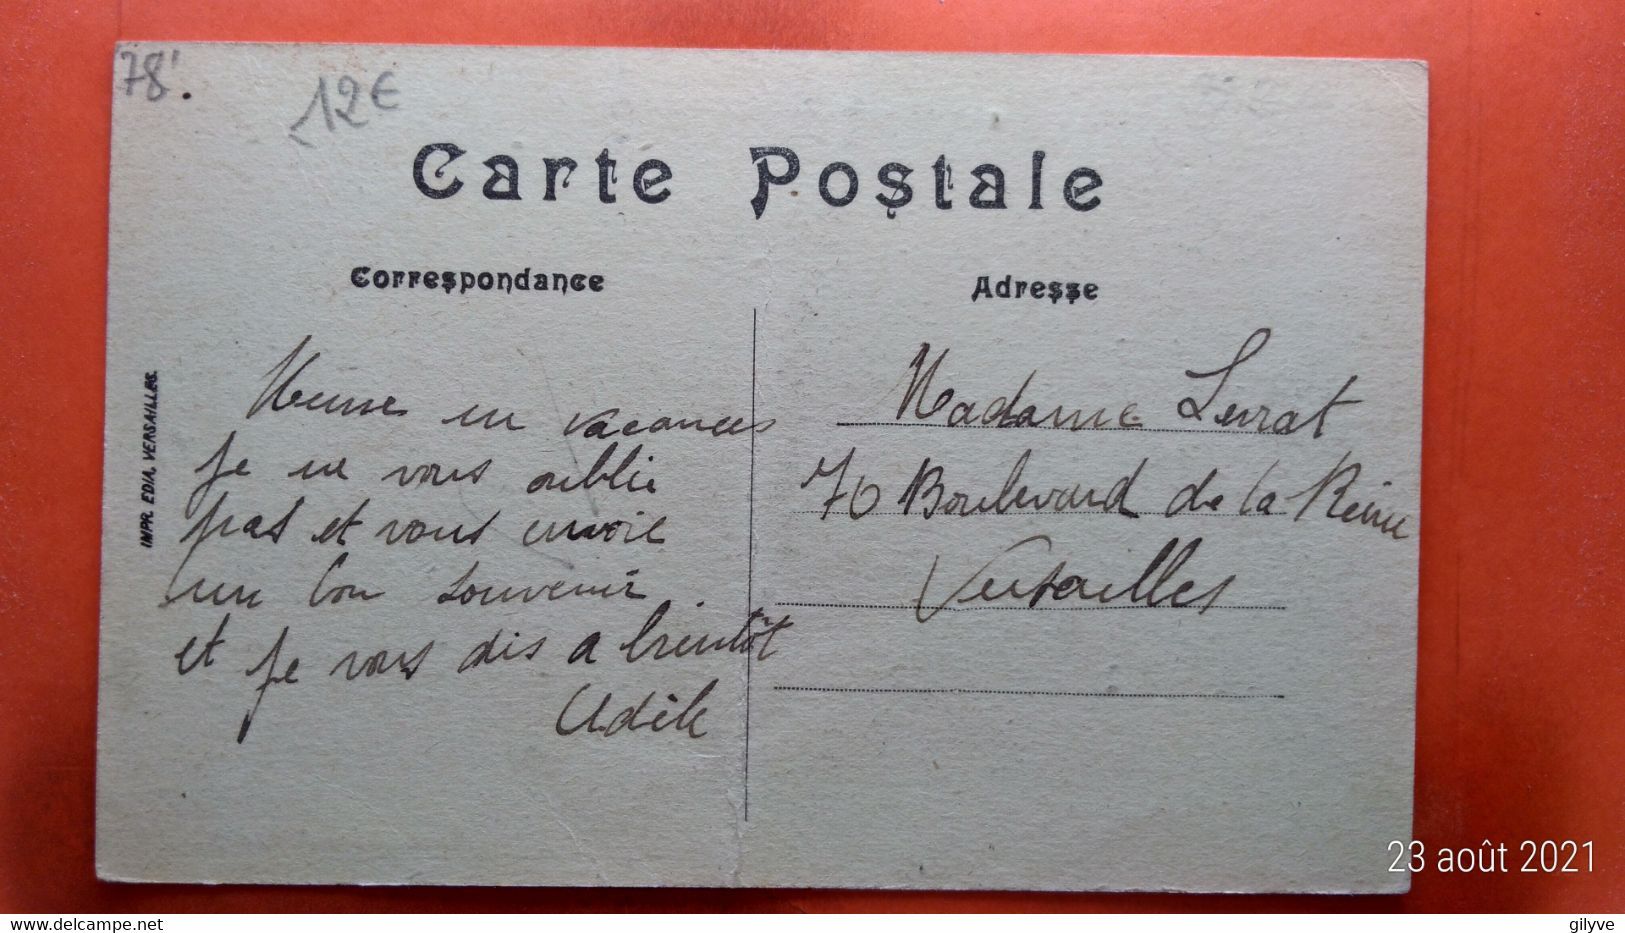 78'.
12€
Carte Postale
Correspondance
Adresse
IMPR. EDIA. VERSAILLES.
Meme en vacances
je ne vous oublie
pas et vous envoie
un bon souvenir
et je vous dis a bientôt
Adèle
Madame Levrat
70 Boulevard de la Reine
Versailles
23 août 2021
gilyve